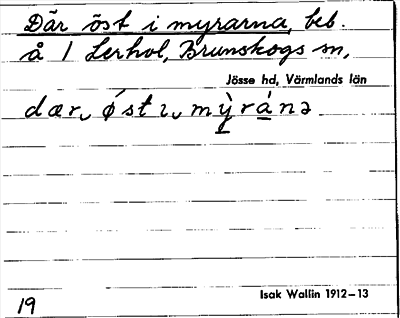 Där öst i myrarna, beb.
å 1 Lerhol, Brunskogs sn,
Jösse hd, Värmlands län
dær öst ı mỳ ránə
Isak Wallin 1912–13
19